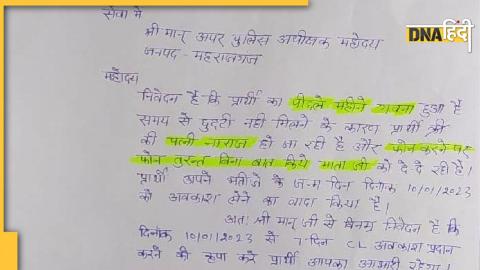 DNA हिंदी
सेवा में
श्री मान् अपर पुलिस अधीक्षक महोदय
जनपद - महराजगंज
महोदय
निवेदन है कि प्रार्थी का पिछले महीने गवना हुआ है
समय से छुट्टी नही मिलने के कारण प्रार्थी
की पत्नी नाराज हो जा रही है और फोन करने पर
फोन तुरन्त बिना बात किये माता जी को दे दे रही है।
प्रार्थी अपने भतीजे के जन्म दिन दिनांक 10/01/2023
को अवकाश लेने का वादा किया है।
अतः श्री मान् जी से विनम्र निवेदन है कि
दिनांक 10/01/2023 से 7 दिन CL अवकाश प्रदान
करने की कृपा करें प्रार्थी आपका आभारी रहेगा।